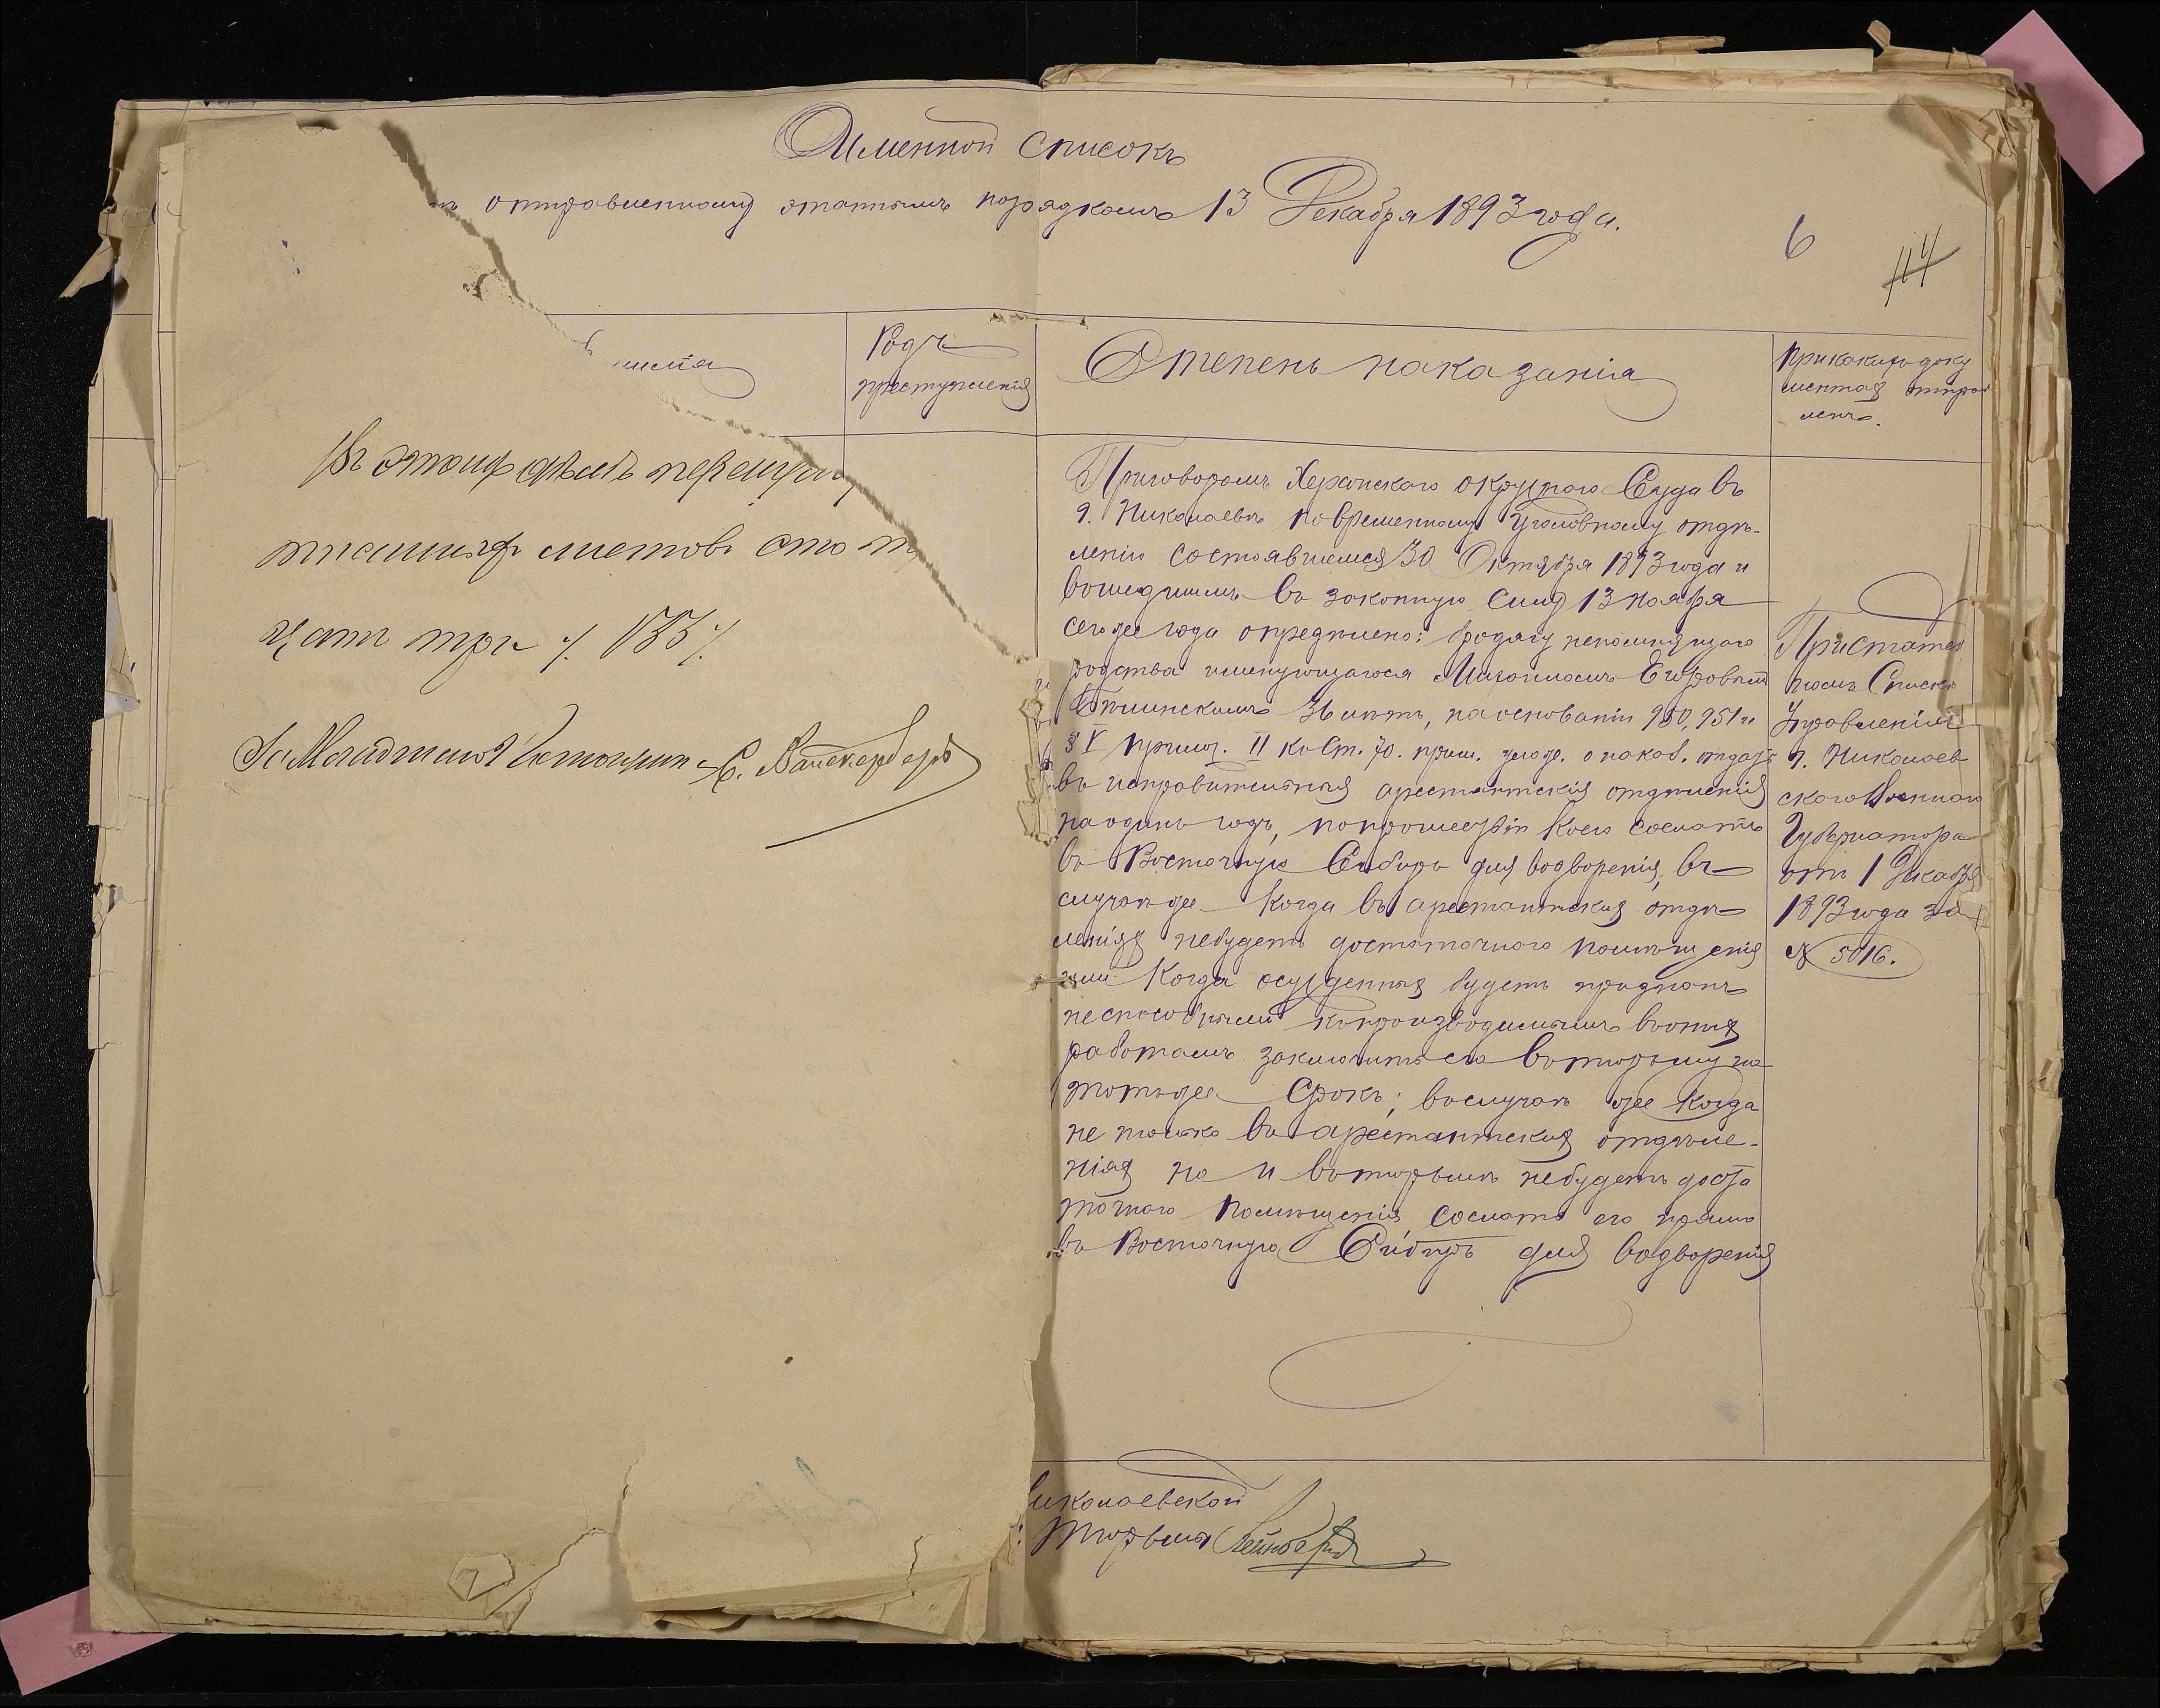 Именной списокъ
отправленному этапнымъ порядкомъ 13 Декабря 1893 года.
6
114
Родъ
преступленія
Степень наказанія
При какихъ доку
ментахъ отправ
ленъ.
Въ этомъ дѣлѣ перену
листовъ сто
цать три ./. 133 ./.
Приговоромъ Херсонскаго Окружнаго Суда въ
г. Николаевѣ по временному Уголовному отдѣ-
ленію состоявшемся 30 Октября 1893 года и
вошедшимъ въ законную силу 13 Ноября
сего же года опредѣлено: бродягу непомнящаго
родства именующагося Михаиломъ Егоровымъ
36 лѣтъ, на основаніи 950, 951 и
§ V прилож. II къ ст. 70. прил. улож. о наказ. отдать
въ исправительныя арестантскія отдѣленія
на одинъ годъ, по прошествіи коего сослать
въ Восточную Сибирь для водворенія, въ
случаѣ же когда въ арестантскихъ отдѣ-
леніяхъ небудетъ достаточнаго помѣщенія
или когда осужденный будетъ признанъ
неспособнымъ къ производимымъ въ оныхъ
работамъ заключить его въ тюрьму на
тотъ же срокъ; въ случаѣ же когда
не только въ арестантскихъ отдѣле-
ніяхъ но и въ тюрьмѣ небудетъ доста
точнаго помѣщенія сослать его прямо
въ Восточную Сибирь для водворенія
При статей
номъ Спискѣ
Управленія
г. Николаев
скаго Военнаго
Губернатора
отъ 1 Декабря
1893 года за
№ 5016.
иколаевской
Тюрьмы